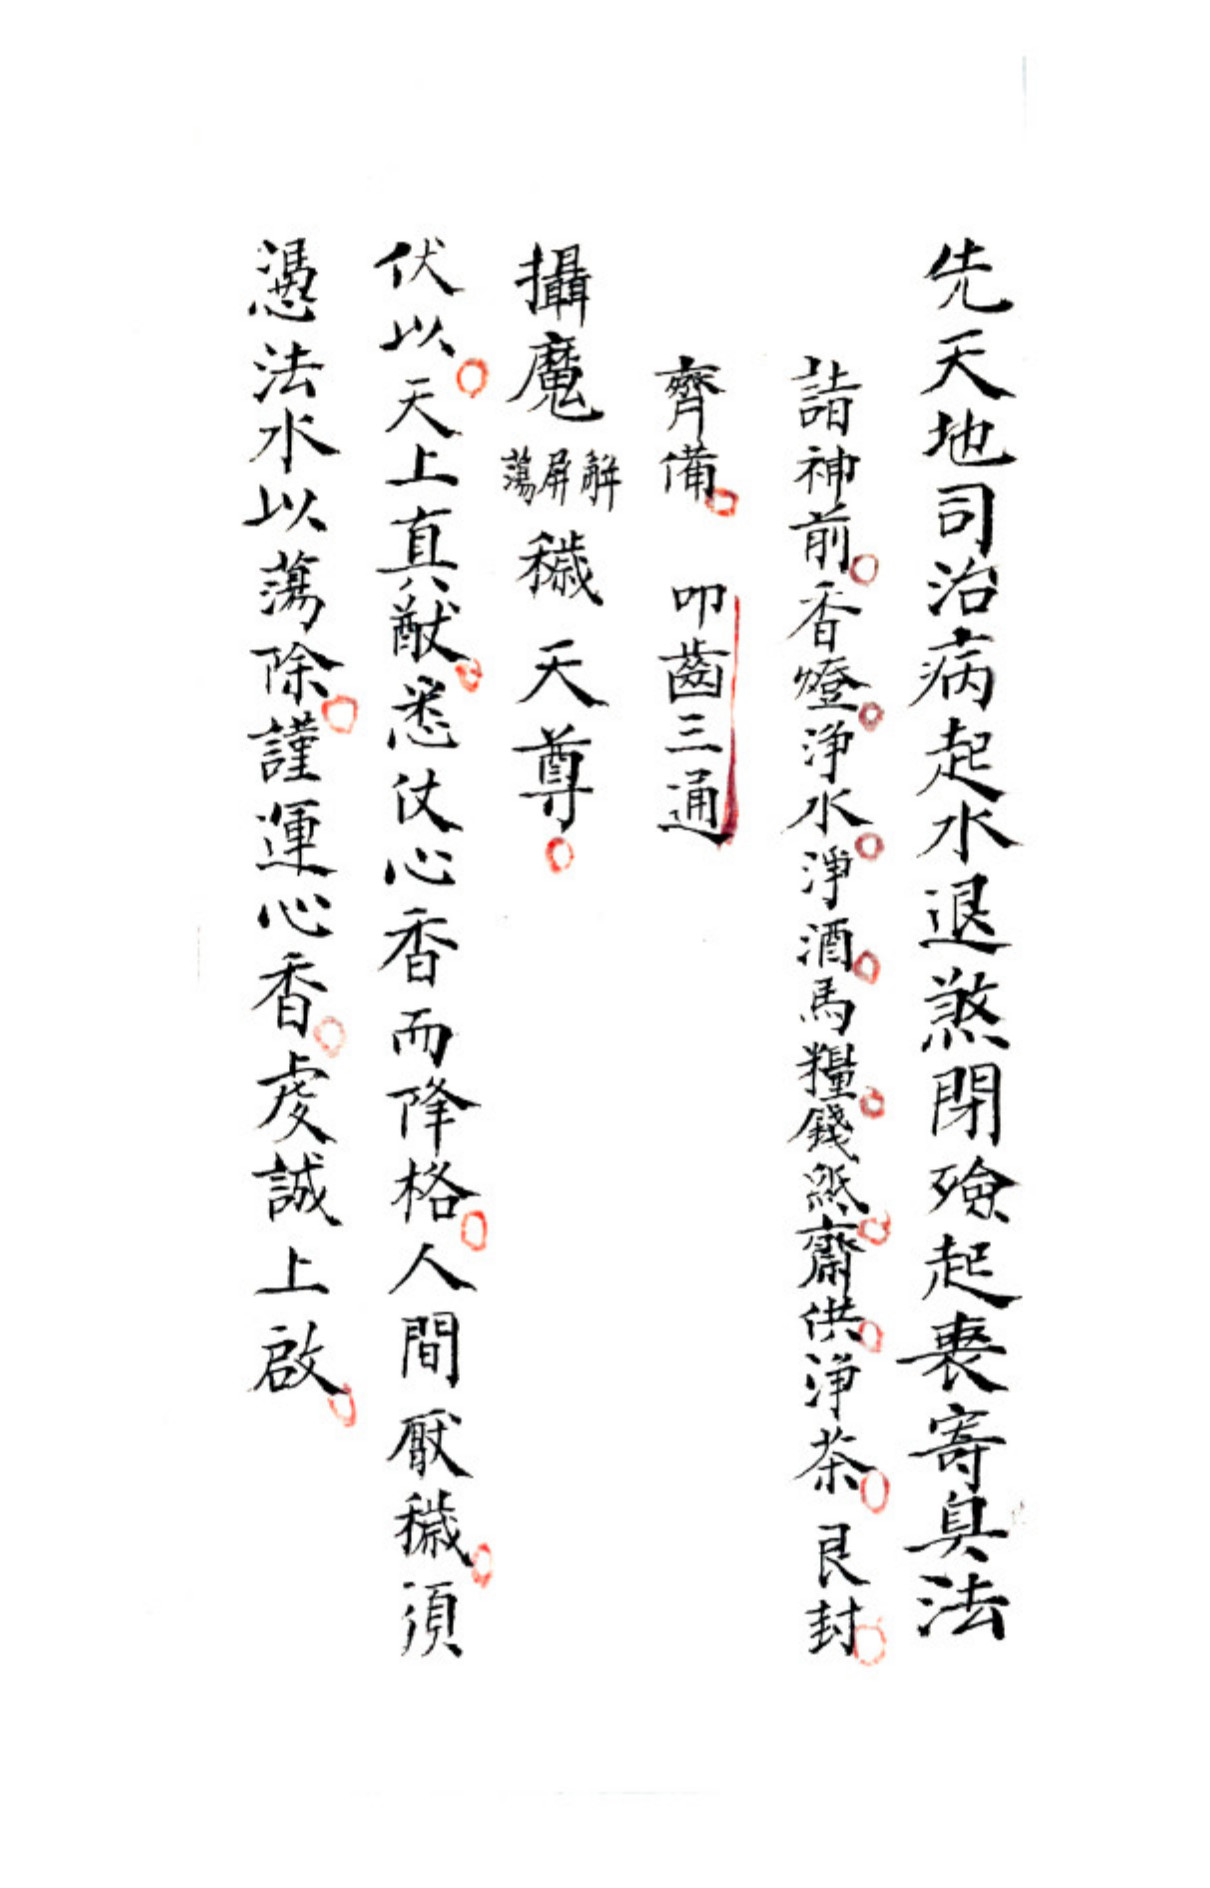 先天地司治病起水退煞閉殮起喪寄臭法
詣神前香燈淨水淨酒馬糧錢紙齋供淨茶艮封
齊備 叩齒三通
攝魔 解屏蕩 穢 天尊
伏以天上真猷悉仗心香而降格人間厭穢須
憑法水以蕩除謹運心香虔誠上啟